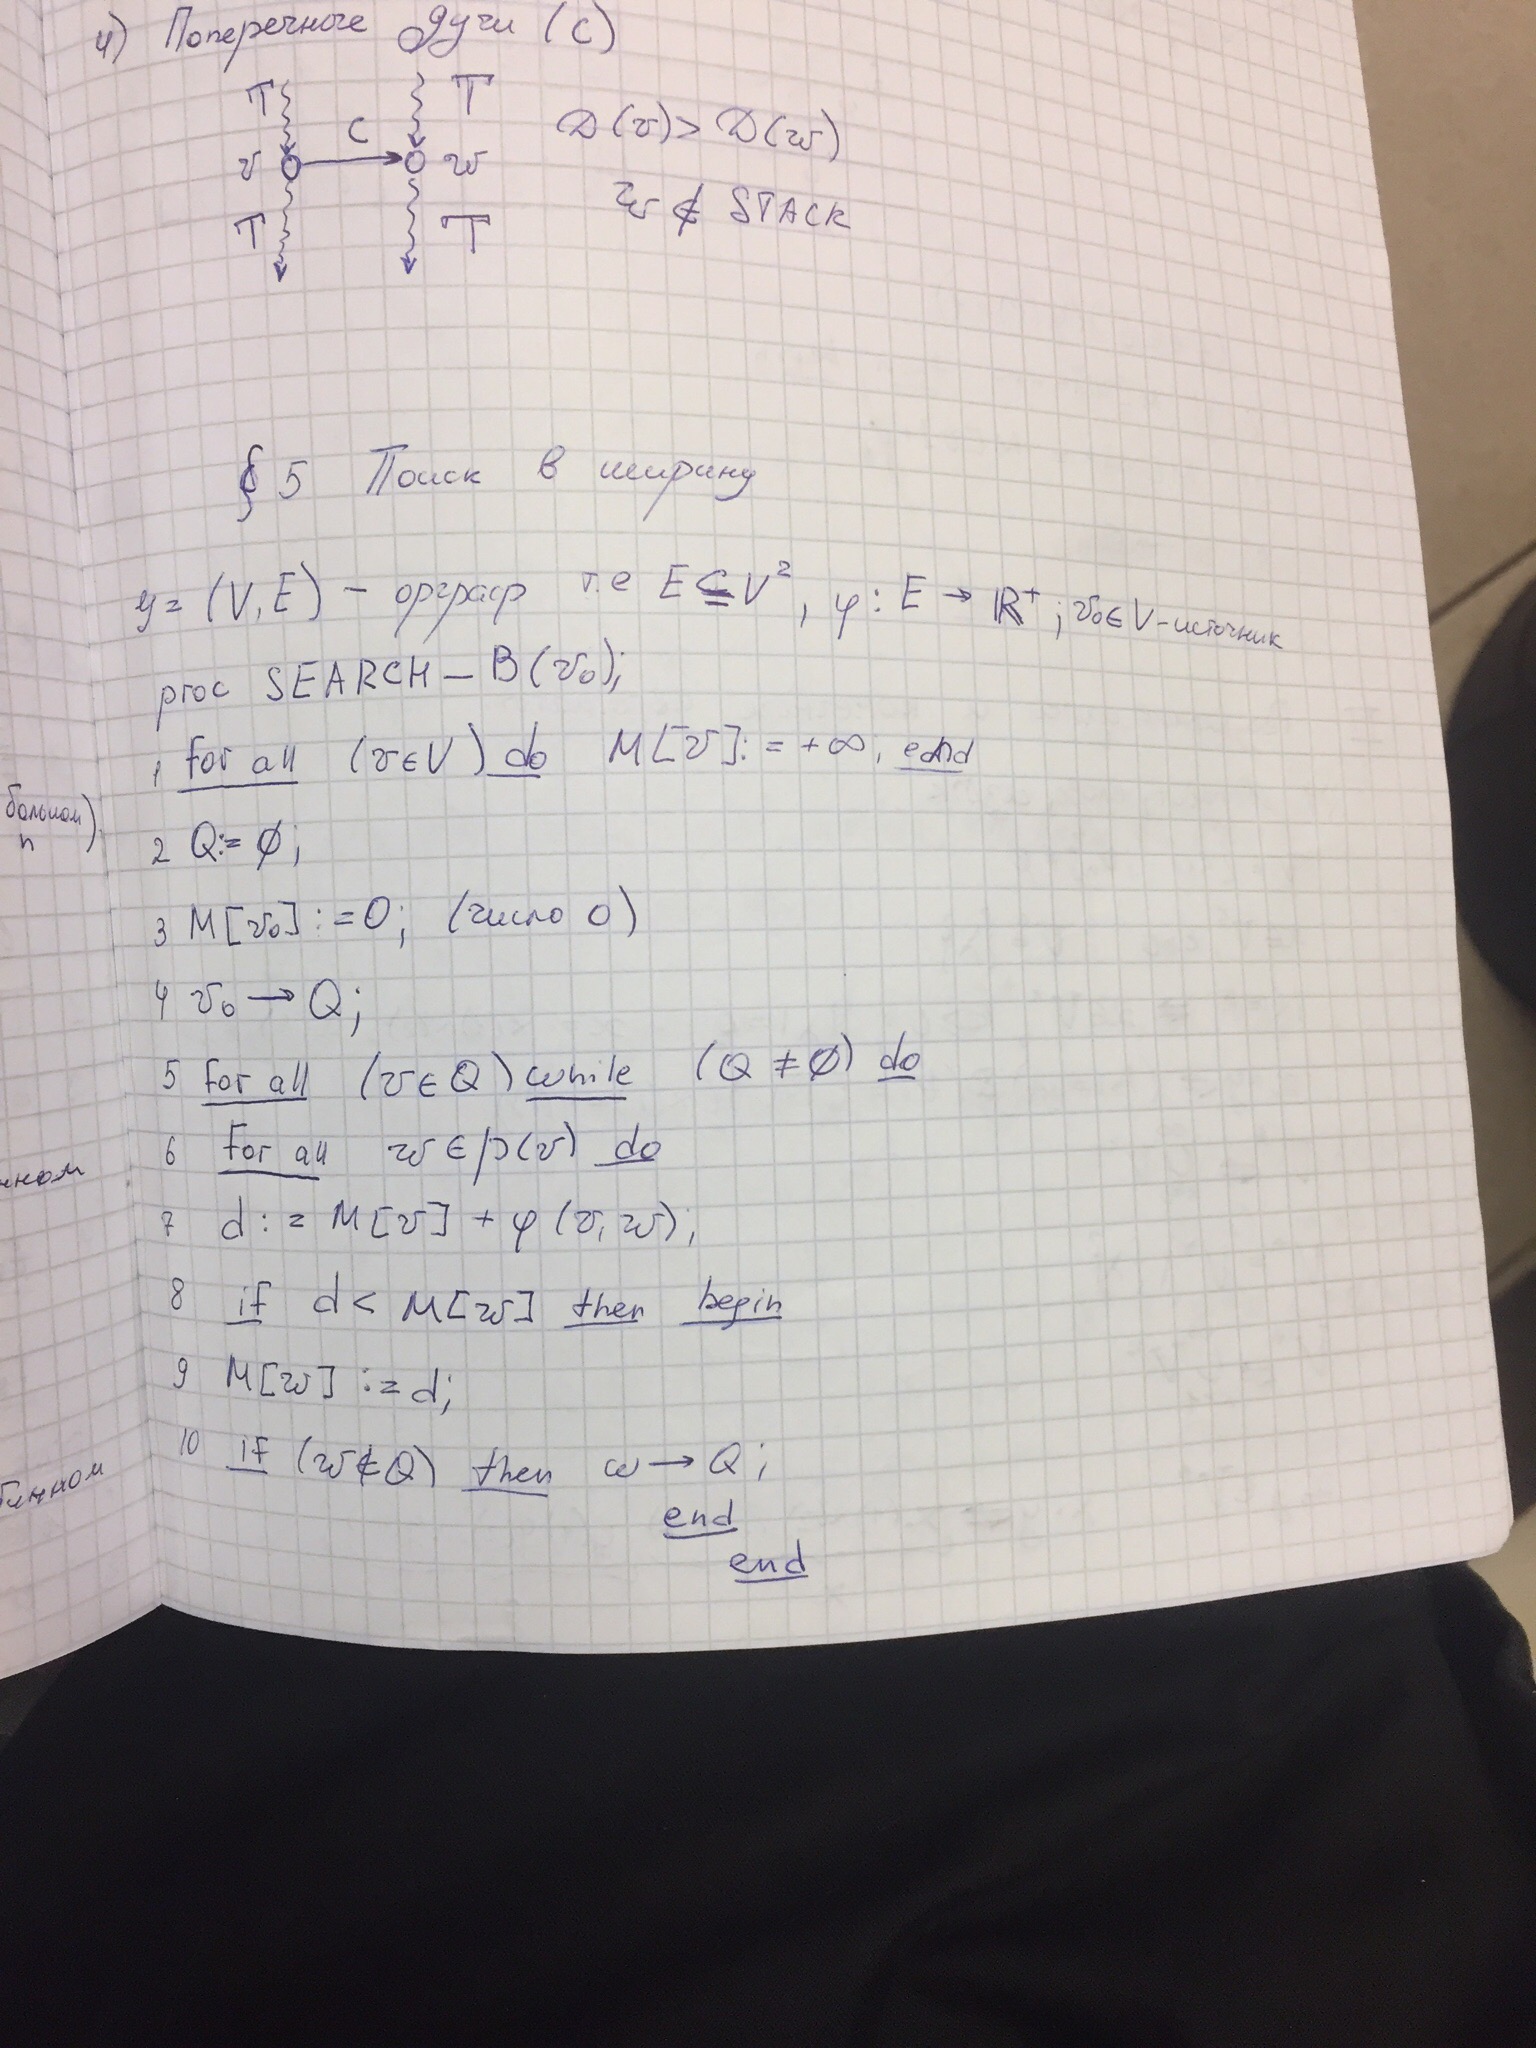 4) Поперечные дуги (C)
T T
C
v w
D(v) > D(w)
T T
w ∉ STACK
§ 5 Поиск в ширину
G = (V, E) – орграф т.е E ⊆ V², φ: E → ℝ⁺; v₀ ∈ V – источник
proc SEARCH – B(v₀);
1 for all (v ∈ V) do M[v] := +∞, end
2 Q := ∅;
3 M[v₀] := 0; (число 0)
4 v₀ → Q;
5 for all (v ∈ Q) while (Q ≠ ∅) do
6 for all w ∈ p(v) do
7 d := M[v] + φ(v, w);
8 if d < M[w] then begin
9 M[w] := d;
10 if (w ∉ Q) then w → Q;
end
end
большом)
n